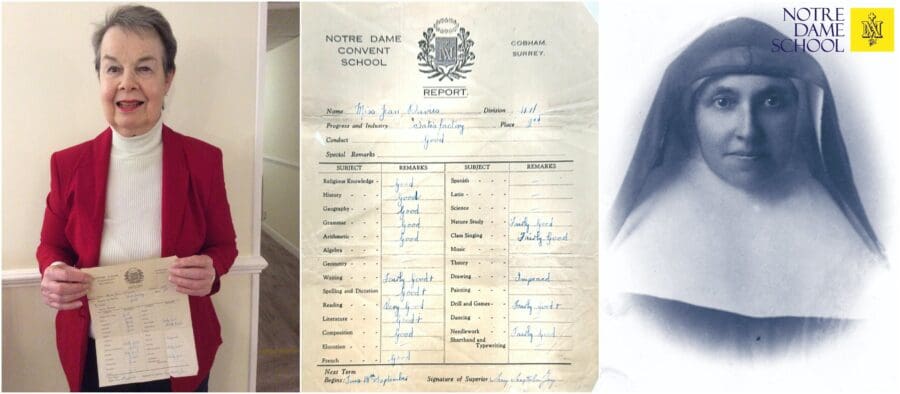 NOTRE DAME
CONVENT
SCHOOL
COBHAM.
SURREY.
REPORT.
Name Miss Jean Division
Progress and Industry Satisfactory Place 2nd
Conduct Good
Special Remarks
SUBJECT REMARKS SUBJECT REMARKS
Religious Knowledge - Good Spanish - - -
History - - - Good Latin - - -
Geography - - - Good Science - - -
Grammar - - - Good Nature Study - Fairly Good
Arithmetic - - Good Class Singing - - Fairly Good
Algebra - - - Music - - -
Geometry - - - Theory - - -
Writing - - - Fairly Good + Drawing - - - Improved
Spelling and Dictation Good + Painting - - -
Reading - - - Very Good Drill and Games - Fairly Good +
Literature - - - Good + Dancing - - -
Composition - - Good Needlework - - Fairly Good
Elocution - - - Shorthand and Typewriting
French - - - Good
Next Term
Begins: September Signature of Superior
NOTRE
DAME
SCHOOL